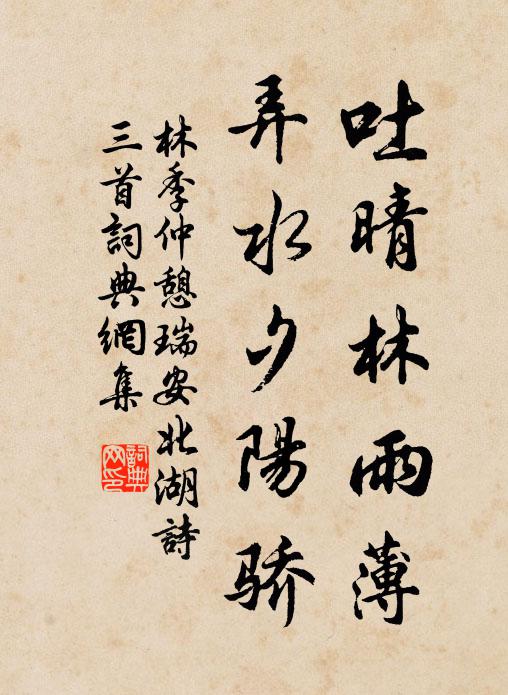 吐晴林雨薄
弄水夕陽骄
林季仲憩瑞安北湖詩
三首詞典網集
詞典网印